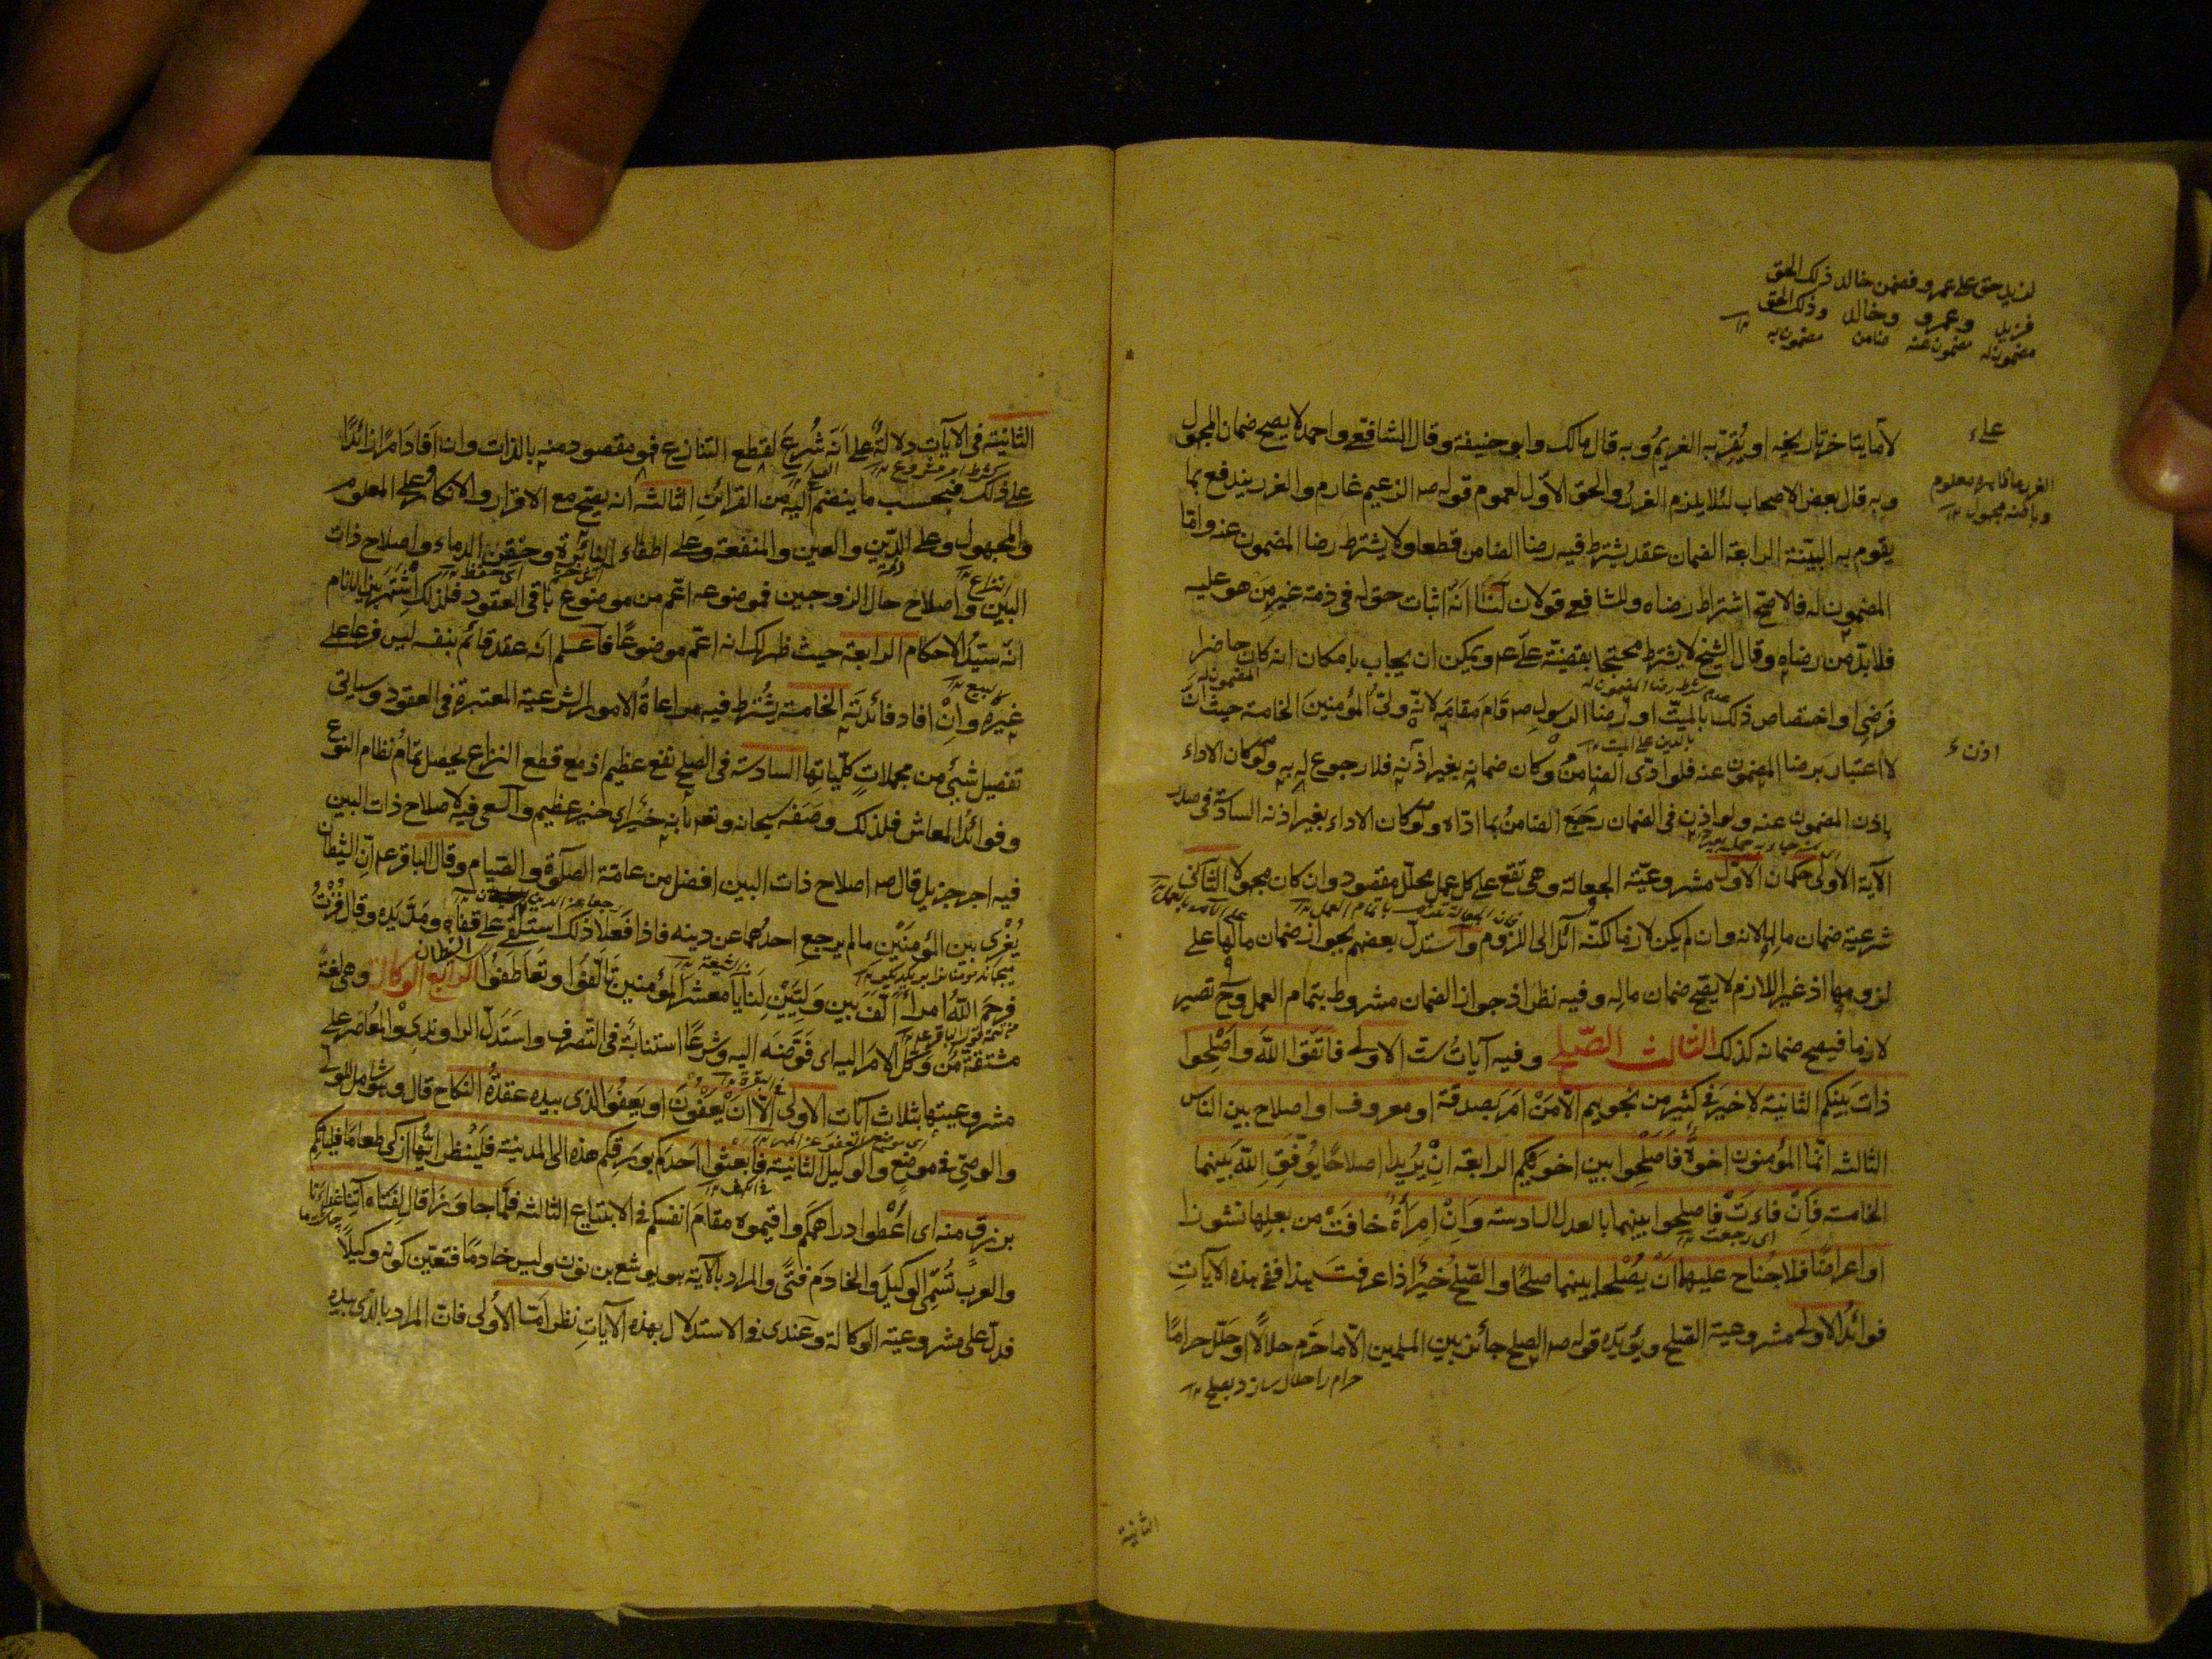 لزيد حق على عمرو فضمن خالد ذلك الحق
فزيد وعمرو وخالد وذلك الحق
مضمون له مضمون عنه ضامن مضمون به
لا ما يتاخر تاريخه او يُقِرّ به الغريمُ وبه قال مالك وابو حنيفة وقال الشافعي واحمد لا يصح ضمان المجهول
وبه قال بعض الاصحاب لئلا يلزم الغررُ والحق الاوّل لعموم قوله صه الزعيم غارم والغرر يندفع بما
يقوم به البيّنة الرابعة الضمان عقد يشترط فيه رضا الضامن قطعا ولا يشترط رضا المضمون عنه وامّا
المضمون له فالاصحّ اشتراط رضاه وللشافعي قولان لَنَا انّه اثبات حق له في ذمة غيرِ مَن هو عليه
فلا بدّ من رضاه وقال الشيخ لا يشترط محتجا بقضيّة علي عم ويمكن ان يجاب بامكان انه كان حاضرا
فرَضِي او اختصاص ذلك بالميّت او رضا الرسول صه قام مقامَه لانّه وليّ المؤمنين الخامسة حيث انّ
لا اعتبار برضا المضمون عنه فلو ادّى الضامنُ وكان ضمانه بغير اذنه فلا رجوع له به ولو كان الاداء
باذن المضمون عنه ولو اذن في الضمان رجَعَ الضامنُ بما ادّاه ولو كان الاداء بغير اذنه السادسة في صدر
الآية الاولى حكمان الاوّل مشروعيّة الجعالة وهي تقع على كل عمل محلّل مقصود وان كان مجهولا الثاني
شرعية ضمان مالها لانه وان لم يكن لازما لكنّه آئل الى اللزوم واستدلّ بعضهم بجواز ضمان مالها على
لزومها اذ غير اللازم لا يصحّ ضمان ماله وفيه نظر اذ جواز الضمان مشروط بتمام العمل وح تصير
لازما فيصح ضمانه كذلك الثالث الصّلح وفيه آيات ست الاولى فاتّقوا اللّه واَصْلِحوا
ذاتَ بَينِكم الثانية لا خيرَ في كثير من نجويهم الّا مَنْ امَرَ بصدقة او معروف او اصلاح بين الناس
الثالثه انّما المؤمنون اخوةٌ فَاَصْلِحوا بين اخويكم الرابعة اِنْ يُرِيدا اصلاحًا يُوَفّقِ اللّه بينهما
الخامسة فَاِنْ فاءَتْ فاصلحوا بينهما بالعدل السادسة وَاِنْ امرَأةٌ خافَتْ من بعلها نشوزا
او اعراضًا فلا جُناح عليهما ان يُصْلحا بينهما صلحًا والصّلحُ خيرٌ اذا عرفت هذا ففي هذه الآياتِ
فوائدُ الاولى مشروعية الصّلح ويؤيّده قوله صه الصلح جائز بين المسلمين الّا ما حَرّم حلالًا او حَلّل حرامًا
حرام را حلال سازد بصلح
الثانية
الثانية في الآيات دلالةٌ على اَنّه شُرِعَ لقطع التنازع فهو مقصود منه بالذات وان افادَ امرًا زائدًا
على ذلك فبحسب ما ينضم اليه من القرائنِ الثالثه انه يصح مع الاقرار والانكار وعلى المعلوم
والمجهول وعلى الدّين والعين والمنفعة وعلى اطفاء النائرة وحقن الدماء واصلاح ذات
البين واصلاح حال الزوجين فموضوعه اعّم من موضوع باقي العقود فلذلك اشتهر بين الانام
انّه سيّدُ الاحكام الرابعة حيث ظهر لك انه اعّم موضوعًا فاعلم انّه عقد قائم بنفسه ليس فرعا على
غيره واِنْ افاد فائدتَه الخامسة يشترط فيه مراعاةُ الامور الشرعية المعتبرة في العقود وسياتي
تفصيل شيءٍ من مجملاتِ كلّياتها السادسة في الصلح نفع عظيم اذ مع قطع النزاع يحصل تمامُ نظام النوع
وفوائدُ المعاش فلذلك وصَفَه سبحانه وتعه بأنه خيرٌ اي خير عظيم والسعي فيه لاصلاح ذات البين
فيه اجر جزيل قال صه اصلاح ذات البين افضل من عامّة الصلٰوة والصّيام وقال الباقر عم انّ الشيطان
يُغْري بين المؤمنَيْن ما لم يرجع احدُهما عن دينه فاذا فَعَلا ذلك استلقى على قفاه ومَدّ يَده وقال فُزْتُ
فرحِمَ اللّهُ امرأً اَلّفَ بين وَلِيَّيْن لَنا يا معشرَ المؤمنين تَالَفُوا وتَعَاطَفُوا الرابع الوكالة وهي لغةً
مشتقة مِنْ وَكَلَ الامرَ اليه اي فَوّضَه اليه وشرعًا استنابةٌ في التّصرف واستَدلّ الراوندي والمعاصر على
مشروعيتها بثلاث آيات الاولى اِلّا اَنْ يَعفُونَ او يَعفوَ الذي بيده عقدةُ النكاح قال وهو شامل للولي
والوصيّ في موضعٍ والوكيل الثانية فابعثوا احدكم بورقكم هذه الى المدينة فليَنْظر ايّها ازكى طعاما فلياتكم
برزقٍ منه اي اعْطوا دراهمكم واقيموه مقامَ انفسكم في الابتياع الثالثه فلمّا جاوَزَا قال لفتاه آتِنا غداءنا
والعرب تُسَمّي الوكيلَ والخادَم فتًى والمراد بالآية هو يوشع بن نون وليس خادمًا فتعيّن كونه وكيلًا
فدلّ على مشروعية الوكالة وعندي في الاستدلال بهذه الآياتِ نظر امّا الأولى فانّ المراد بالذي بيده